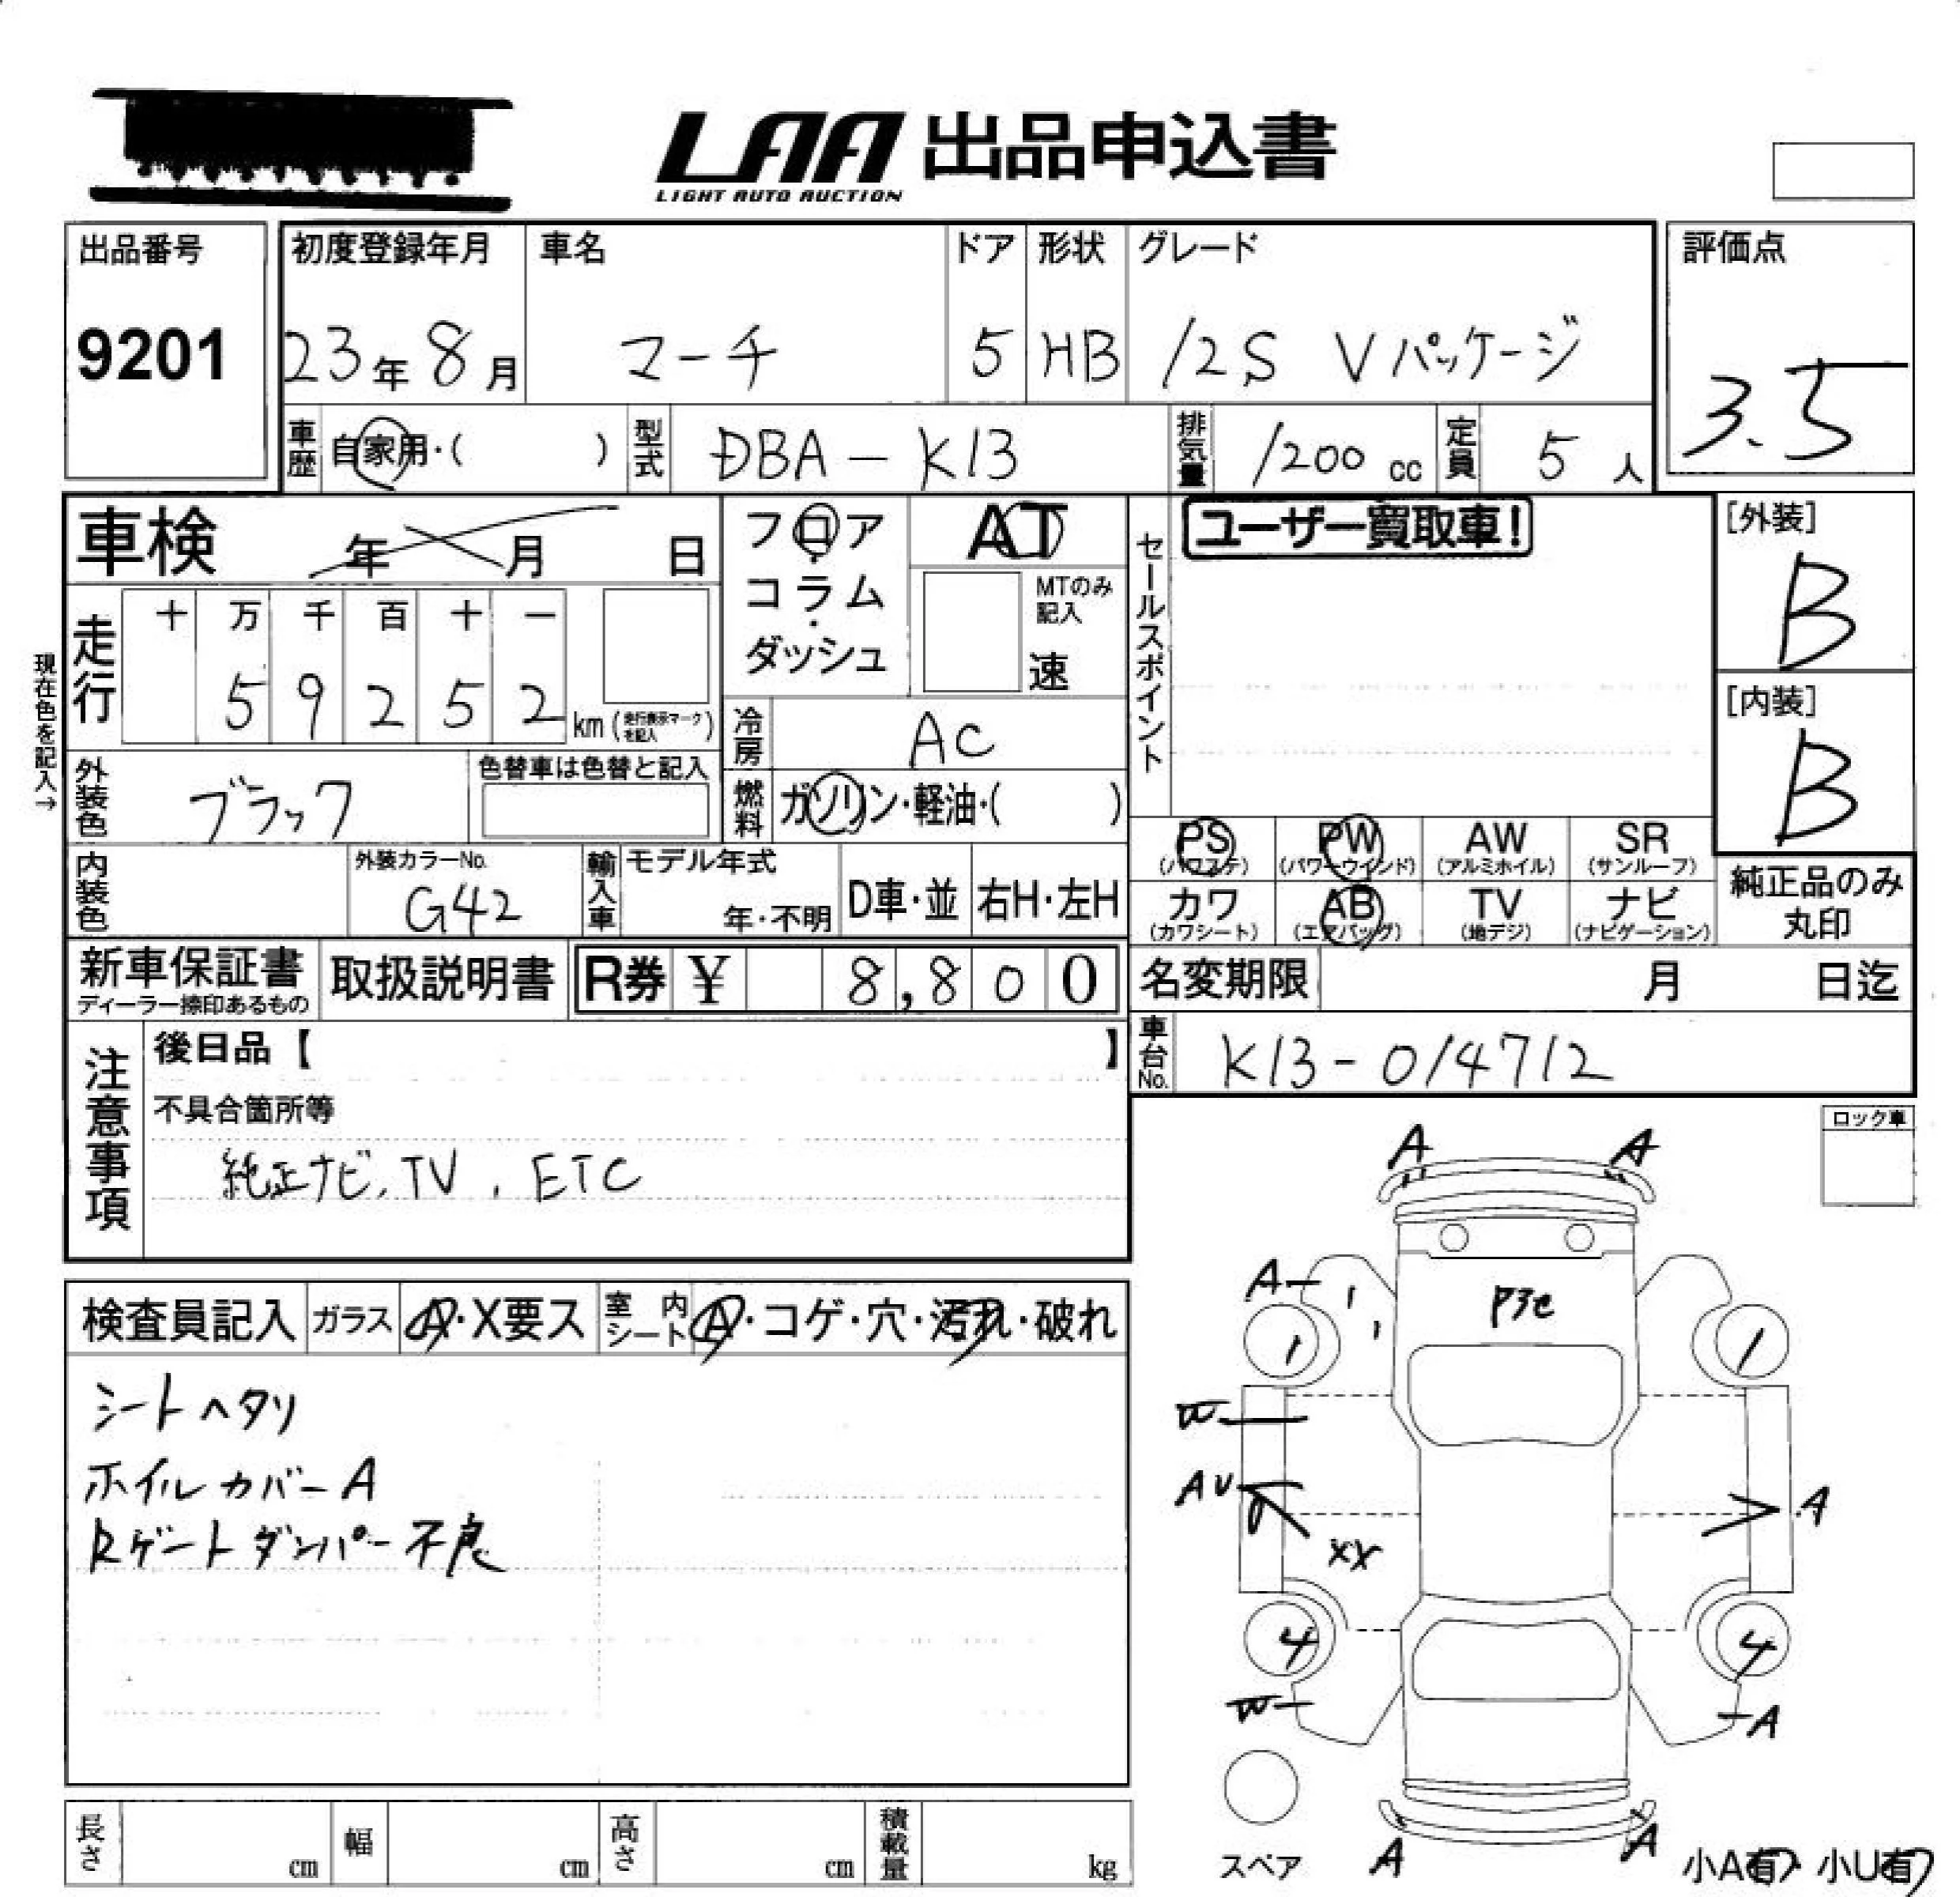 LAA 出品申込書
LIGHT AUTO AUCTION
出品番号
9201
初度登録年月 車名 ドア 形状 グレード
23年 8月 マーチ 5 HB 12S Vパッケージ
評価点
3.5
車歴 自家用・( ) 型式 DBA-K13 排気量 1200 cc 定員 5 人
車検 年 月 日
フロア・コラム・ダッシュ
AT
MTのみ記入
速
セールスポイント
ユーザー買取車!
[外装]
B
[内装]
B
現在色を記入→
走行
十 万 千 百 十 一
5 9 2 5 2 km (走行表示マークを記入)
冷房 AC
外装色 ブラック 色替車は色替と記入
燃料 ガソリン・軽油・( )
PS AW SR
PW
(パワステ) (パワーウインド) (アルミホイル) (サンルーフ)
カワ AB TV ナビ
(カワシート) (エアバッグ) (地デジ) (ナビゲーション)
純正品のみ
丸印
内装色 外装カラーNo. G42
輸入車 モデル年式 年・不明 D車・並 右H・左H
新車保証書 取扱説明書 R券 ¥ 8,800
ディーラー捺印あるもの
名変期限 月 日迄
車台No. K13-014712
注意事項
後日品【 】
不具合箇所等
純正ナビ、TV、ETC
ロック車
検査員記入 ガラス A・X要ス 室内シート A・コゲ・穴・汚れ・破れ
シートヘタリ
ホイルカバーA
Rゲートダンパー不良
A A
A
1 1
W
AU A
XX
4 4
W A
スペア A A 小A有・小U有
長さ cm 幅 cm 高さ cm 積載量 kg